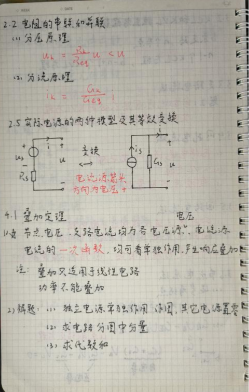 2.2 电阻的串联和并联
(1) 分压原理
u_k = R_k/R_eq u < u
(2) 分流原理
i_k = G_k/G_eq i
2.5 实际电源的两种模型及其等效变换
i
i
+
u_s
R_s
+
u
变换
i_s
G_s
+
u
电流源箭头
方向为电压+
4.1 叠加定理
电压
节点电压、支路电流均为各电压源、电流源
电流的一次函数，均可看单独作用，产生响应叠加
注：叠加只适用于线性电路
功率不能叠加
2) 解题：(1) 独立电源单独作用，作图，其它电源置零
(2) 求电路分图中分量
(3) 求代数和